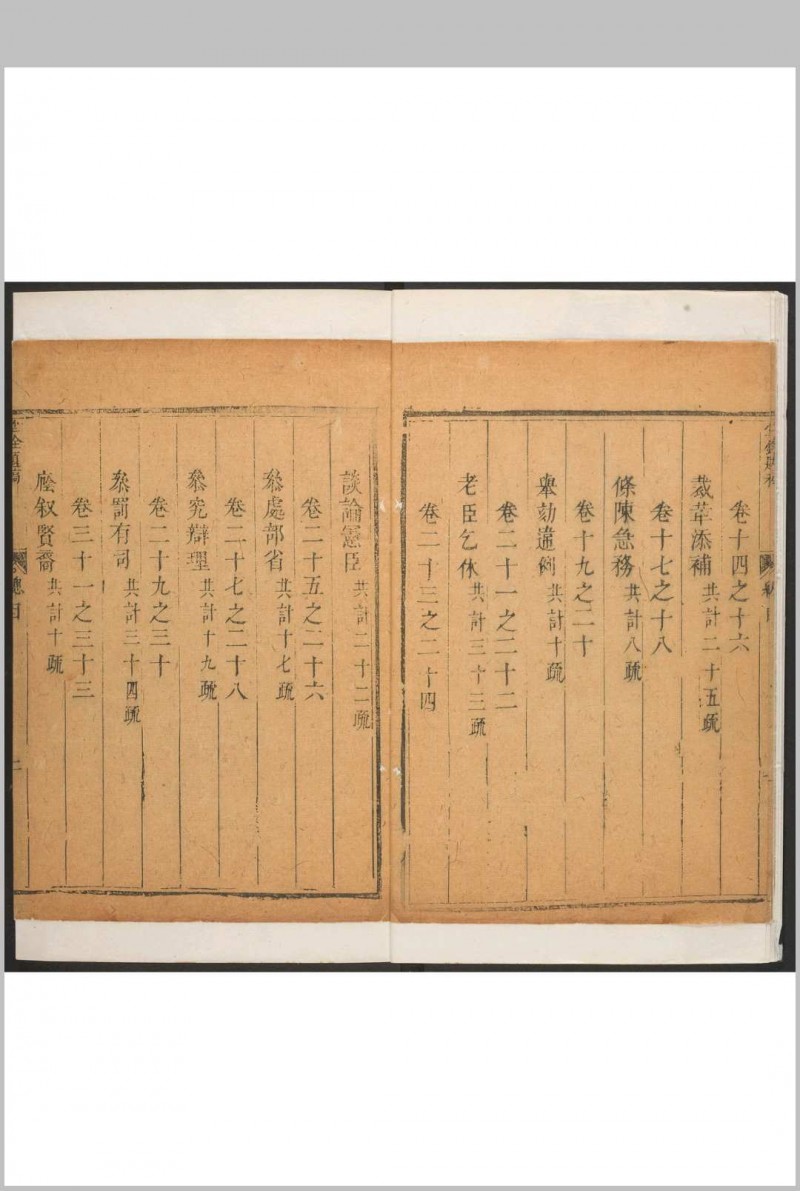 卷十四之十六
裁革添補共計二十五疏
卷十七之十八
條陳急務共計八疏
卷十九之二十
舉劾違例共計十疏
卷二十一之二十二
老臣乞休共計三十三疏
卷二十三之二十四
談論憲臣共計二十二疏
卷二十五之二十六
叅處部省共計十七疏
卷二十七之二十八
叅究辯理共計十九疏
卷二十九之三十
叅罰有司共計三十四疏
卷三十一之三十三
廕叙賢裔共計十疏
總目
二